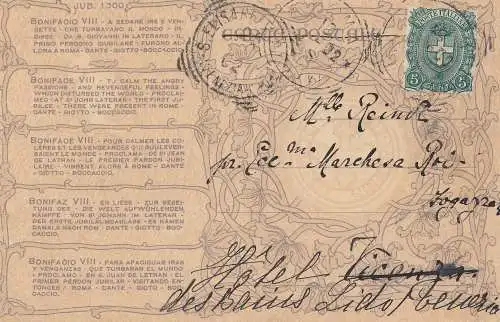 JUB. 1300
BONIFACIO VIII - A SEDARE IRE E VEN-
DETTE - CHE TURBAVANO IL MONDO - DI-
RESSE - DA S. GIOVANNI IN LATERANO - IL
PRIMO PERDONO GIUBILARE - FURONO AL-
LORA A ROMA - DANTE - GIOTTO - BOCCACCIO.
BONIFACE VIII - TO CALM THE ANGRY
PASSIONS - AND REVENGEFUL FEELINGS -
WHICH DISTURBED THE WORLD - PROCLAI-
MED - AT St JOHN LATERAN - THE FIRST JU-
BILEE - THERE WERE IN ROME FROM THERE -
DANTE - GIOTTO - BOCCACCIO.
BONIFACE VIII - POUR CALMER LES CO-
LÈRES ET LES VENGEANCES QUI BOULEVER-
SAIENT LE MONDE - PROCLAMA - DE St JEAN
DE LATRAN - LE PREMIER PARDON JUBI-
LAIRE - VINRENT ALORS À ROME - DANTE -
GIOTTO - BOCCACCIO.
BONIFAZ VIII - EN LIESS - ZUR BESEI-
TUNG DER - DIE WELT AUFWÜHLENDEN
KÄMPFE - VON St JOHANN IM LATERAN -
DER ERSTE JUBILEUMABLASS - ES KAMEN
DAMALS NACH ROM - DANTE - GIOTTO - BOC-
CACCIO.
BONIFACIO VIII - PARA APACIGUAR IRAS
Y VENGANZAS - QUE TURBARAN EL MUNDO
- PROCLAMO - EN S. JUAN DE LETRAN - EL
PRIMER PERDON JUBILAR - VISITARON EN-
TONCES - ROMA - DANTE - GIOTTO - BOC-
CACCIO.
CARTOLINA POSTALE
POSTE ITALIANE
5 CENT. 5
Mlle Reindt
per Ecc.ma Marchesa Roi
Fogazzaro
Hôtel Vicenza
des Bains Lido Venezia